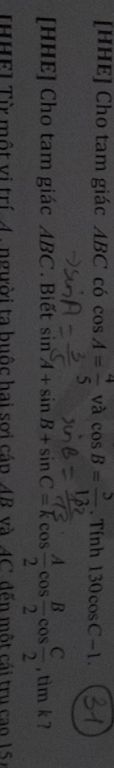 [HHE] Cho tam giác ABC có cos A = 4/5 và cos B = 5/13. Tính 130cosC−1. 31
→ sin A = 3/5 sin B = 12/13
[HHE] Cho tam giác ABC. Biết sin A + sin B + sin C = k cos A/2 cos B/2 cos C/2, tìm k?
[HHE] Từ một vị trí A, người ta buộc hai sợi cáp AB và AC đến một cái trụ cao 15